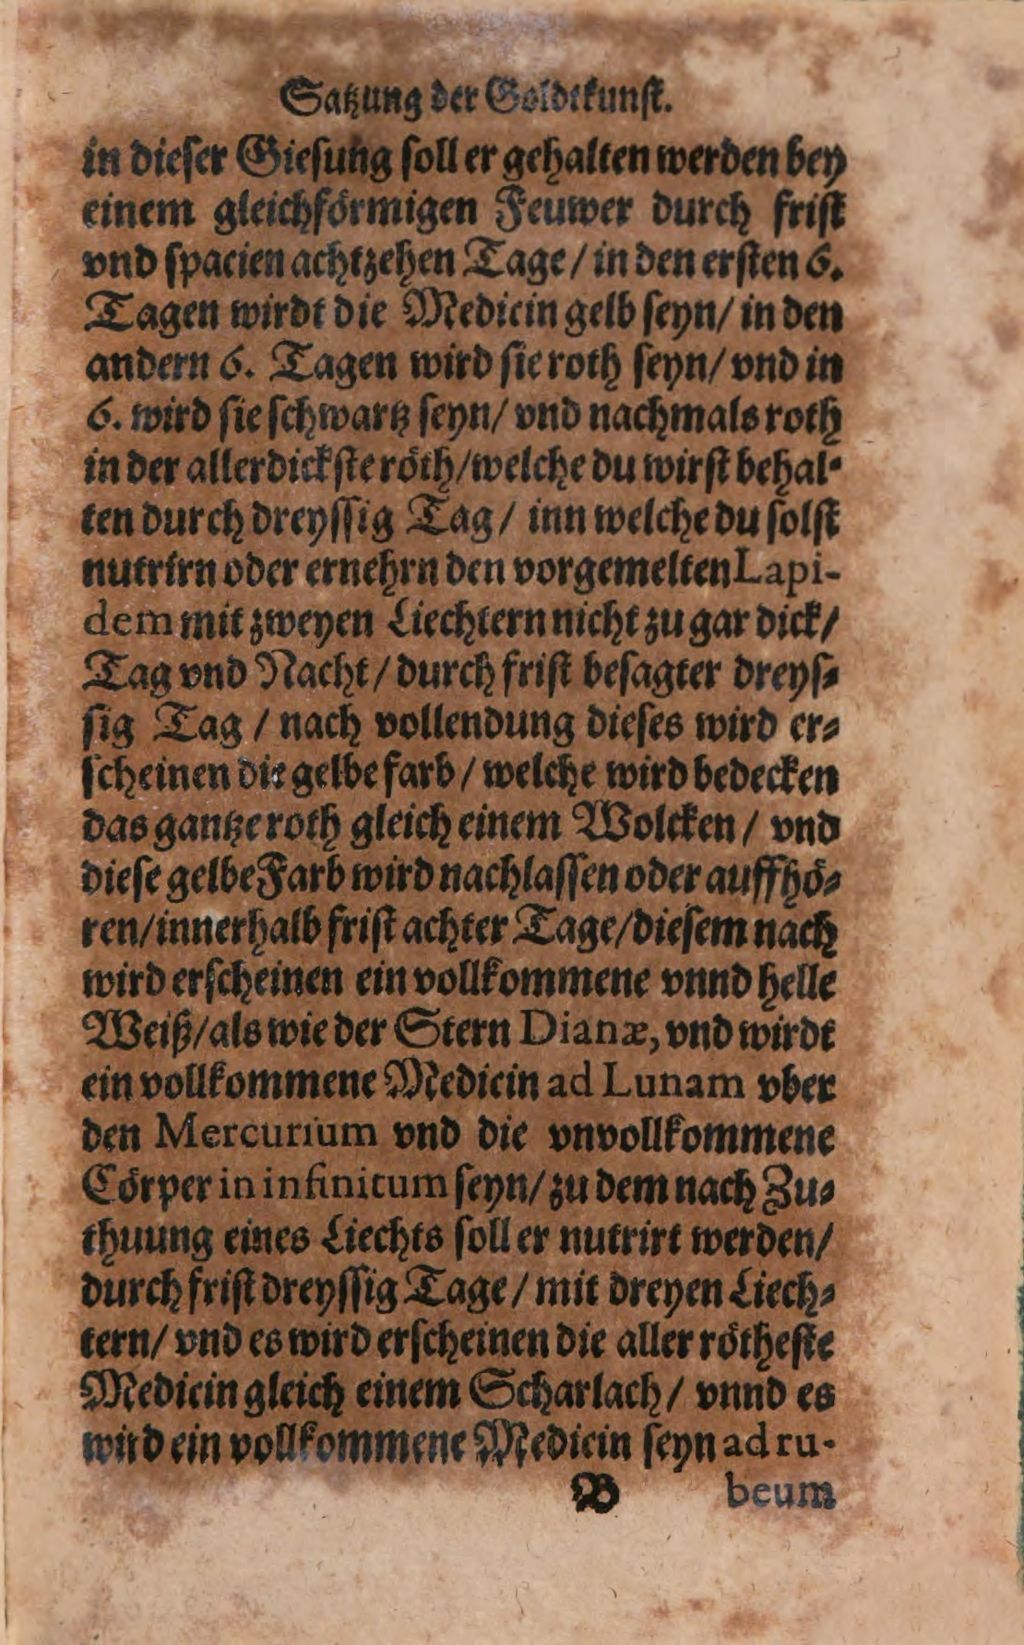 Satzung der Goldtkunst.
in dieser Giesung soll er gehalten werden bey
einem gleichförmigen Feuwer durch frist
vnd spacien achtzehen Tage / in den ersten 6.
Tagen wirdt die Medicin gelb seyn / in den
andern 6. Tagen wird sie roth seyn / vnd in
6. wird sie schwartz seyn / vnd nachmals roth
in der allerdickste röth / welche du wirst behal-
ten durch dreyssig Tag / inn welche du solst
nutrirn oder ernehrn den vorgemelten Lapi-
dem mit zweyen Liechtern nicht zu gar dick /
Tag vnd Nacht / durch frist besagter dreys-
sig Tag / nach vollendung dieses wird er-
scheinen die gelbe farb / welche wird bedecken
das gantze roth gleich einem Wolcken / vnd
diese gelbe Farb wird nachlassen oder auffhö-
ren / innerhalb frist achter Tage / diesem nach
wird erscheinen ein vollkommene vnnd helle
Weiß / als wie der Stern Dianæ, vnd wirdt
ein vollkommene Medicin ad Lunam vber
den Mercurium vnd die vnvollkommene
Cörper in infinitum seyn / zu dem nach Zu-
thuung eines Liechts soll er nutrirt werden /
durch frist dreyssig Tage / mit dreyen Liech-
tern / vnd es wird erscheinen die aller rötheste
Medicin gleich einem Scharlach / vnnd es
wird ein vollkommene Medicin seyn ad ru-
B beum